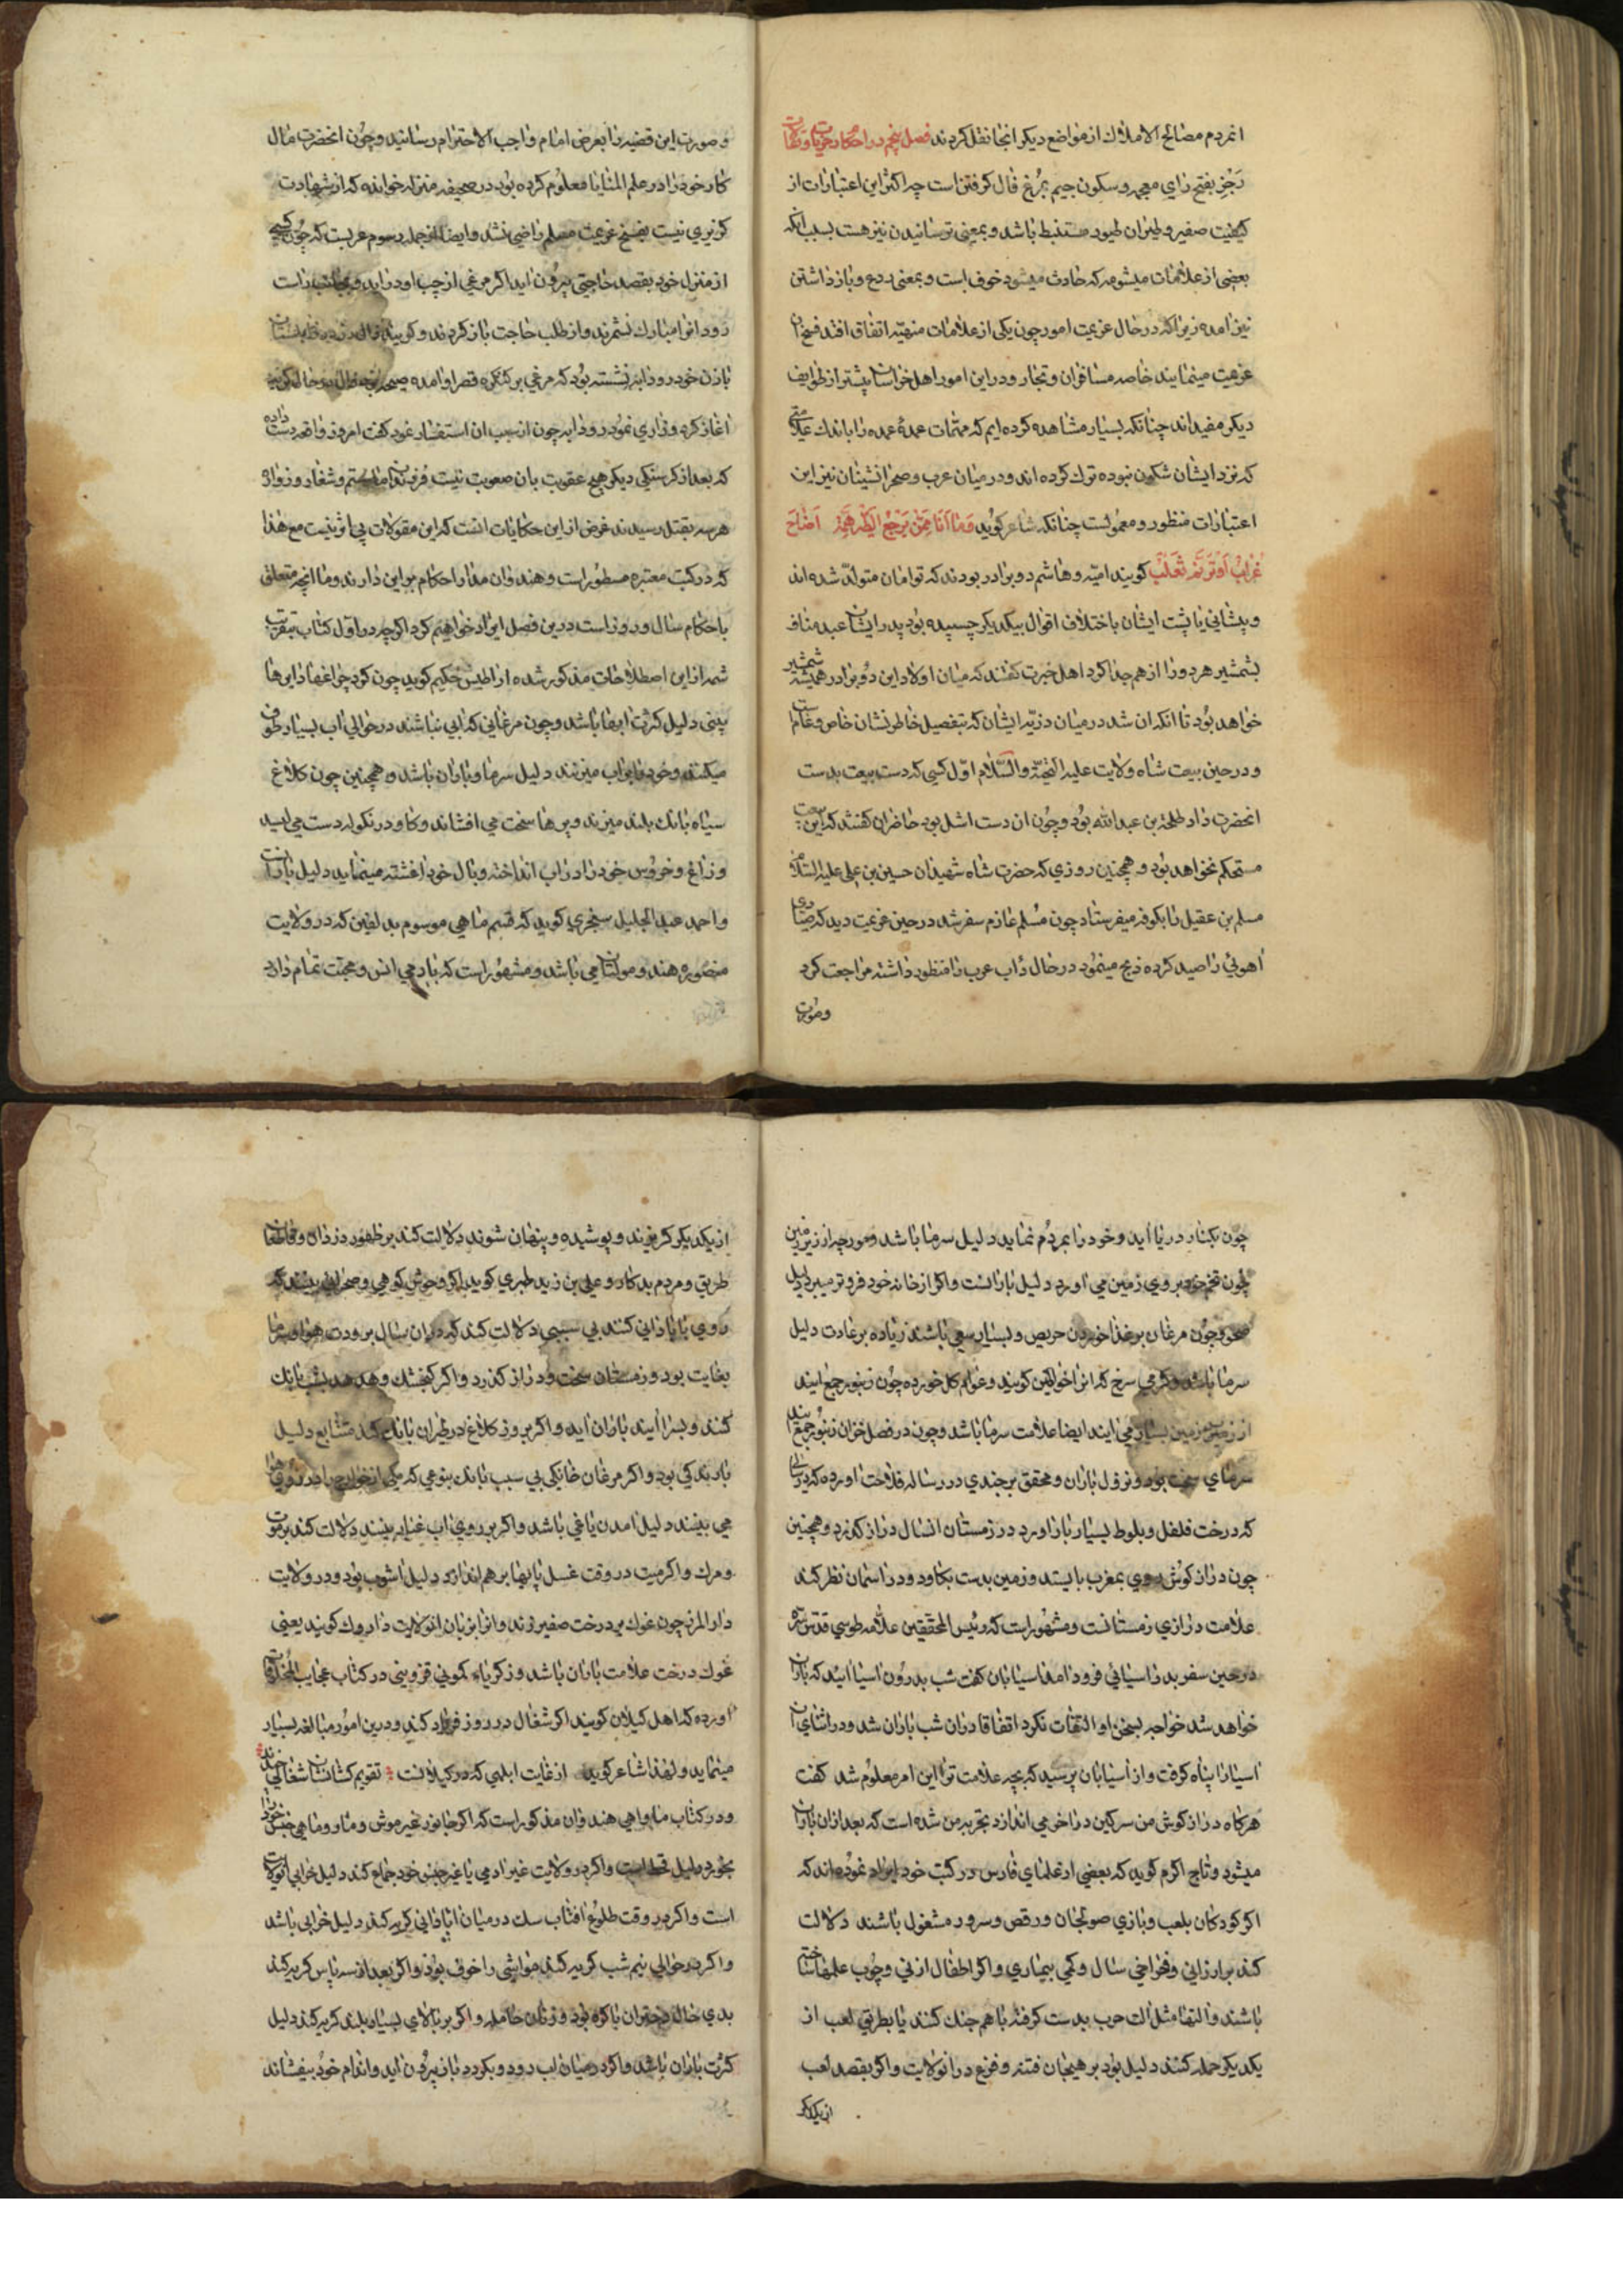 انمردم مصالح الاملاك از مواضع ديكر انجا نقل كردند فصل پنجم در احكام
زجر بفتح زاى معجمه و سكون جيم بمرغ فال كرفتن است چه اكثر اين اعتبارات از
كيفيت صفير و طيران طيور مستنبط باشد و بمعنى ترسانيدن نيز هست بسبب انكه
بعضى از علامات ميشومه كه حادث ميشود خوف است و بمعنى ردع و باز داشتن
نيز امده زيرا كه در حال عزيمت امور چون يكى از علامات منهيه اتفاق افتد فسخ ان
عزيمت مينمايند خاصه مسافران و تجار و در اين امور اهل خراسان بيشتر از طوايف
ديكر مقيداند چنانكه بسيار مشاهده كرده ايم كه مهمات عمدهٔ عمده را باندك علامتى
كه نزد ايشان شكون نبوده ترك كرده اند و در ميان عرب و صحرانشينان نيز اين
اعتبارات منظور و معمولست چنانكه شاعر كويد وما انا ممن يزجر الطير همه اصاح
غراب او ترنم ثعلب كويند اميه و هاشم دو برادر بودند كه توامان متولد شده اند
و پيشانى يا پشت ايشان باختلاف اقوال بيكديكر چسپيده بود پدر ايشان عبد مناف
بشمشير هر دو را از هم جدا كرد اهل خبرت كفتند كه ميان اولاد اين دو برادر هميشه شمشير
خواهد بود تا انكه ان شد در ميان ذريه ايشان كه بتفصيل خاطر نشان خاص و عام است
و در حين بيعت شاه ولايت عليه التحية والسلام اول كسى كه دست بيعت بدست
انحضرت داد طلحة بن عبدالله بود و چون ان دست اشل بود حاضران كفتند كه اين بيعت
مستحكم نخواهد بود و همچنين روزي كه حضرت شاه شهيدان حسين بن على عليه السلام
مسلم بن عقيل را بكوفه ميفرستاد چون مسلم عازم سفر شد در حين عزيمت ديد كه صيادى
اهوئي را صيد كرده ذبح مينمود در حال داب عرب را منظور داشته مراجعت كرد
وصورت
وصورت اين قضيه را بعرض امام واجب الاحترام رسانيد و چون انحضرت مال
كار خود را در علم المنايا معلوم كرده بود در صحيفه منزله خوانده كه از شهادت
كزيري نيست بفسخ عزيمت مسلم راضى نشد و ايضا از جمله رسوم عربست كه چون كسى
از منزل خود بقصد حاجتى بيرون ايد اكر مرغي از چپ او درايد و بجانب راست
رود انرا مبارك نشمرند و از طلب حاجت باز كردند و كويند
با زن خود روزابه نشسته بود كه مرغي بر كنكره قصر او امده
اغاز كرد و زارى نمود روزابه چون از سبب ان استفسار نمود كفت امروز واقعه دست داده
كه بعد از كرسنكى ديكر هيچ عقوبت بان صعوبت نيست
هر سه بقتل رسيدند غرض از اين حكايات انست كه اين مقولات بي اثر نيست مع هذا
كه در كتب معتبره مسطور است و هندوان مدار احكام بر اين دارند و ما انچه متعلق
باحكام سال و روز است درين فصل ايراد خواهيم كرد اكرچه در اول كتاب بتقريب
شمه از اين اصطلاحات مذكور شده ارطيس حكيم كويد چون كرد چراغها دايره ها
بينى دليل كثرت ابرها باشد و چون مرغاني كه ابي نباشند در حوالي اب بسيار طوف
ميكنند و خود را براب ميزنند دليل سرما و باران باشد و همچنين چون كلاغ
سياه بانك بلند ميزند و پرها سخت مي افشاند و كاو درنكوله دست مي ليسد
و زاغ و خروس خود را در اب انداخته و بال خود اغشته مينمايد دليل بارانست
و احمد عبد الجليل سنجري كويد كه قسم ماهي موسوم بدلفين كه در ولايت
منصوره هند و مولتان مي باشد و مشهور است كه با ادمي انس و محبت تمام دارد
چون بكنار دريا ايد و خود را بمردم نمايد دليل سرما باشد و مورچه از زير زمين
چون تخم خود بروي زمين مي اورد دليل بارانست و اكر از خانه خود فروتر ميبرد دليل
صحو و چون مرغان بر غذا خوردن حريص و بسيار سعى باشند زياده بر عادت دليل
سرما باشد و كرمي سرخ كه انرا خراطين كويند و عوام كل خورده چون زنبور جمع ايند
از زير زمين بسيار مي ايند ايضا علامت سرما باشد و چون در فصل خزان زنبور جمع ايند
سرماي سخت بود و نزول باران و محقق برجندي در رساله فلاحت اورده كه در سالى
كه درخت فلفل و بلوط بسيار بار اورد در زمستان انسال دراز كذرد و همچنين
چون دراز كوش روي بمغرب بايستد و زمين بدست بكاود و در اسمان نظر كند
علامت درازي زمستانست و مشهور است كه رئيس المحققين علامه طوسي قدس سره
در حين سفر بدر اسيائي فرود امد اسيابان كفت شب بدرون اسيا ائيد كه باران
خواهد شد خواجه بسخن او التفات نكرد اتفاقا در ان شب باران شد و در اثناي ان
اسيا را پناه كرفت و از اسيابان پرسيد كه بچه علامت ترا اين امر معلوم شد كفت
هركاه دراز كوش من سركين در اخور مي اندازد بتجربه من شده است كه بعد از ان باران
ميشود و تاج اكرم كويد كه بعضي از علماي فارس در كتب خود ايراد نموده اند كه
اكر كودكان بلعب و بازي صولجان و رقص و سرود مشغول باشند دلالت
كند بر ارزاني و فراخي سال و كمي بيماري و اكر اطفال از ني و چوب علمها ساخته
باشند و التها مثل الت حرب بدست كرفته با هم جنك كنند يا بطريق لعب از
يكديكر حمله كنند دليل بود بر هيجان فتنه و فزع در انولايت و اكر بقصد لعب
از يكديكر
از يكديكر كريزند و پوشيده و پنهان شوند دلالت كند بر ظهور دزدان و قاطعان
طريق و مردم بدكار و علي بن زيد طبري كويد اكر وحوش كوهي و صحرايي بينند كه
روي با بادانى كنند بي سببي دلالت كند كه در ان سال برودت هوا و سرما
بغايت بود و زمستان سخت و دراز كذرد و اكر كنجشك و هدهد بشب بانك
كنند و بسرا ايند باران ايد و اكر بروز كلاغ در طيران بانك كند متتابع دليل
بارندكي بود و اكر مرغان خانكي بي سبب بانك بنوعي كه مكى از خوارج را در روى هوا
مي بينند دليل امدن ياغي باشد و اكر بر روي اب غبار بينند دلالت كند بر موت
و مرك و اكر ميت در وقت غسل پايها بر هم اندازد دليل اشوب بود و در ولايت
دار المرز چون غوك بر درخت صفير زند و انرا بزبان انولايت داروك كويند يعني
غوك درخت علامت باران باشد و زكرياء كموني قزويني در كتاب عجايب المخلوقات
اورده كه اهل كيلان كويند اكر شغال در روز فرياد كند و درين امور مبالغه بسيار
مينمايد و لهذا شاعر كويد از غايت ابلهي كه در كيلانست تقويم كشانشان شغالي چندند
و در كتاب ماواهي هندوان مذكور است كه اكر جانور غير موش و مار و ماهي جنس خود را
بخورد دليل قحط است و اكر در ولايت غير ادمي با غير جنس خود جماع كند دليل خرابي انولايت
است و اكر در وقت طلوع افتاب سك در ميان ابادانى كريه كند دليل خرابي باشد
و اكر در حوالي نيم شب كريه كند مواشي را خوف بود و اكر بعد از سه پاس كريه كند
بدي حال دختران باكره بود و زنان حامله و اكر بر بالاي بسيار بلند كريه كند دليل
كثرت باران باشد و اكر در ميان اب رود و بكردد باز بيرون ايد و اندام خود بيفشاند